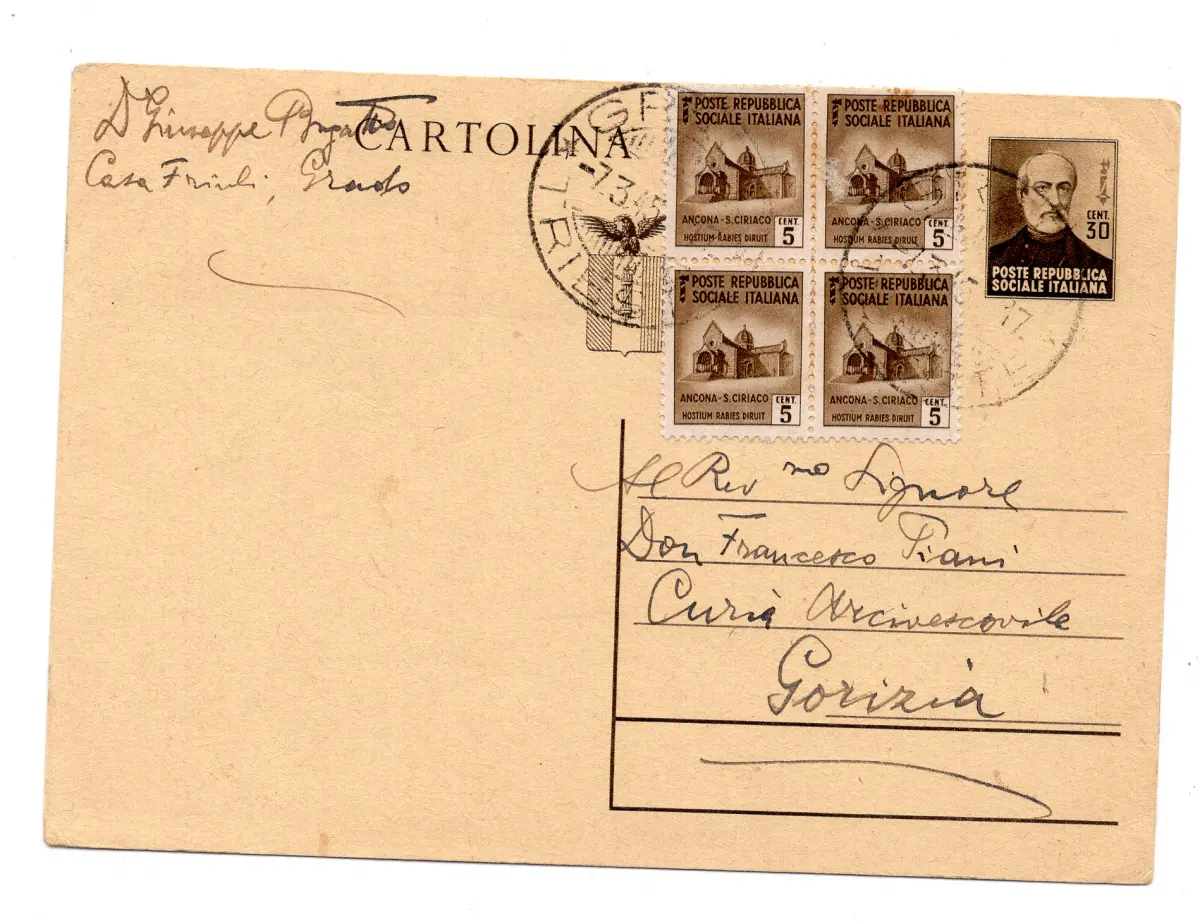 D Giuseppe
Casa Friuli, Grado
CARTOLINA
7.3.45
POSTE REPUBBLICA
SOCIALE ITALIANA
ANCONA-S.CIRIACO
HOSTIUM RABIES DIRUIT
CENT.
5
POSTE REPUBBLICA
SOCIALE ITALIANA
ANCONA-S.CIRIACO
HOSTIUM RABIES DIRUIT
CENT.
5
POSTE REPUBBLICA
SOCIALE ITALIANA
ANCONA-S.CIRIACO
HOSTIUM RABIES DIRUIT
CENT.
5
POSTE REPUBBLICA
SOCIALE ITALIANA
ANCONA-S.CIRIACO
HOSTIUM RABIES DIRUIT
CENT.
5
CENT.
30
POSTE REPUBBLICA
SOCIALE ITALIANA
17
Al Rev mo Signore
Don Francesco Piani
Curia Arcivescovile
Gorizia